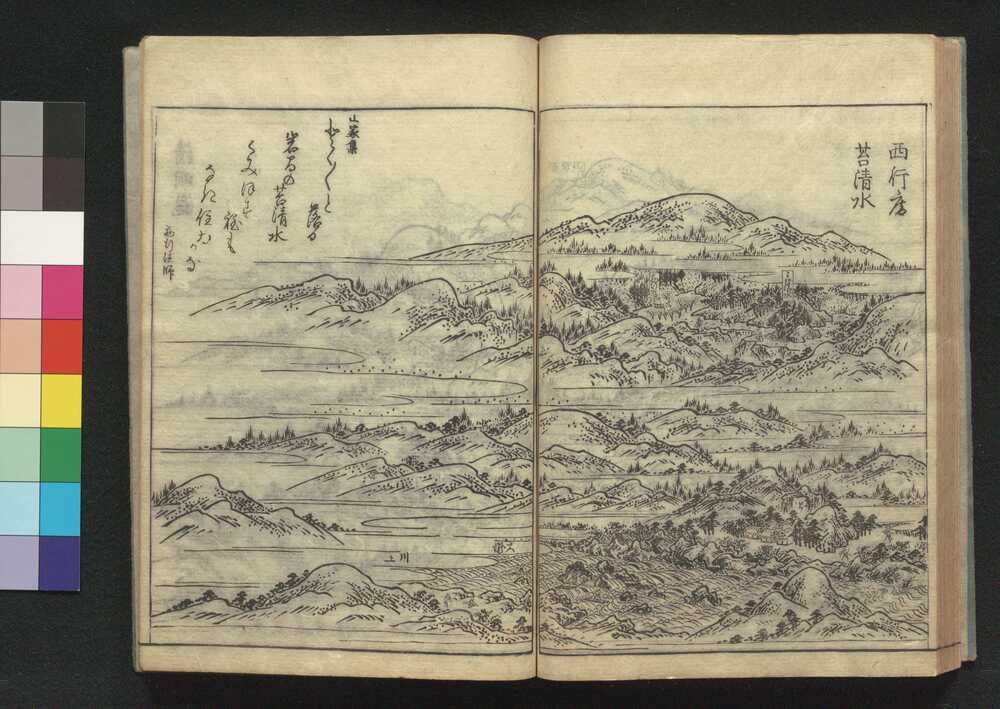 西行庵
苔清水
山家集
とく〱と落る
岩間の苔清水
くみほす程も
なき住ゐかな
西行法師
川上